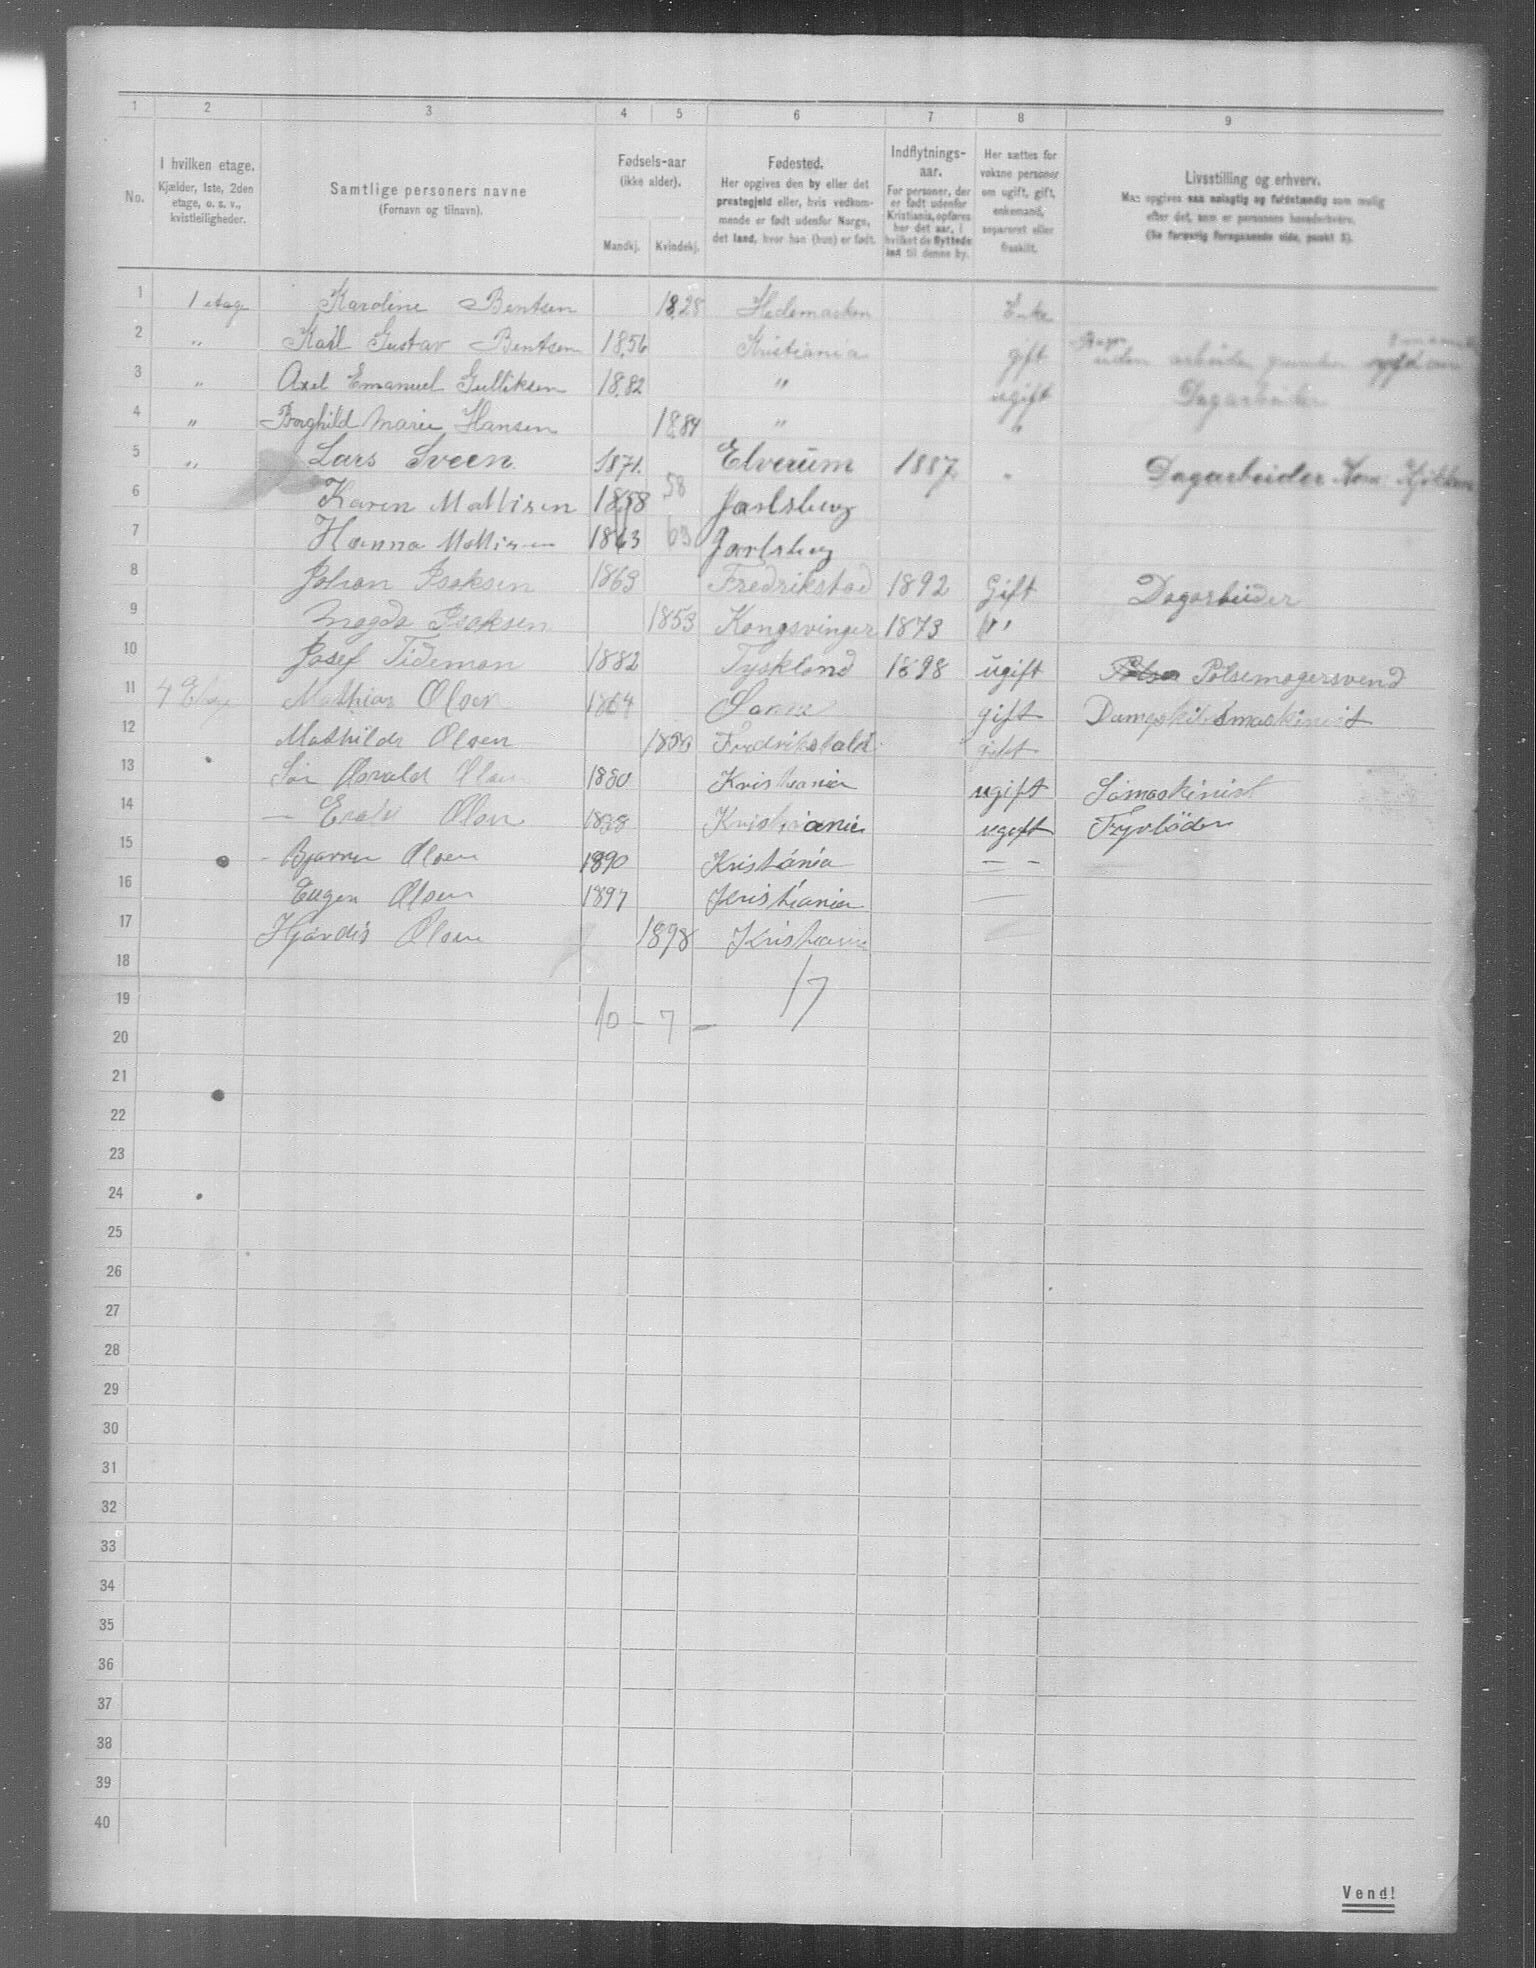 1 2 3 4 5 6 7 8 9
No.
I hvilken etage.
Kjælder, 1ste, 2den etage, o. s. v., kvistleiligheder.
Samtlige personers navne
(Fornavn og tilnavn).
Fødsels-aar
(ikke alder).
Mandkj. Kvindekj.
Fødested.
Her opgives den by eller det prestegjeld eller, hvis vedkommende er født udenfor Norge, det land, hvor han (hun) er født.
Indflytnings-aar.
For personer, der er født udenfor Kristiania, opføres her det aar, i hvilket de flyttede ind til denne by.
Her sættes for voksne personer om ugift, gift, enkemand, separeret eller fraskilt.
Livsstilling og erhverv.
Man opgives saa nøiagtig og fuldstændig som mulig efter det, som er personens hovederhverv.
(Se forøvrig foregaaende side, punkt 5).
1 1 etag Karoline Bentsen 1828 Hedemarken Enke
2 " Karl Gustav Bentsen 1856 Kristiania gift uden arbeide
3 " Axel Emanuel Gulliksen 1882 " ugift Dagarbeider
4 " Borghild Marie Hansen 1884 " "
5 " Lars Sveen 1871 Elverum 1887 " Dagarbeider
6 Karen Mathisen 1858 58 Jarlsberg
7 Hanna Mathisen 1863 63 Jarlsberg
8 Johan Isaksen 1863 Fredrikstad 1892 Gift Dagarbeider
9 Magda Isaksen 1853 Kongsvinger 1873 "
10 Josef Tideman 1882 Tyskland 1898 ugift Pølsemagersvend
11 4 Etag Mathias Olsen 1864 gift Dampskibsmaskinist
12 Mathilde Olsen Fredrikstald gift
13 Osvald Olsen 1880 Kristiania ugift Sömaskinist
14 — Olsen 1888 Kristiania ugift Fyrböder
15 Bjarne Olsen 1890 Kristiania — —
16 Eugen Olsen 1897 Kristiania —
17 Hjørdis Olsen 1898 Kristiania
18
19 17
20 10 - 7 -
21
22
23
24
25
26
27
28
29
30
31
32
33
34
35
36
37
38
39
40
Vend!